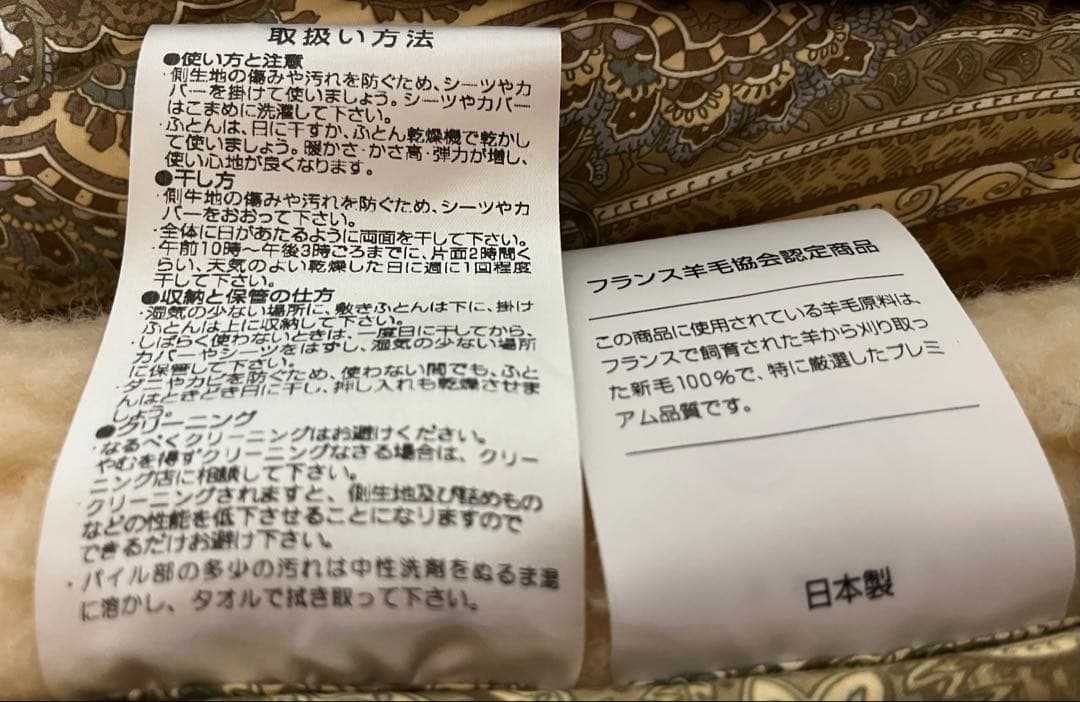 取扱い方法
●使い方と注意
・側生地の傷みや汚れを防ぐため、シーツやカ
バーを掛けて使いましょう。シーツやカバー
はこまめに洗濯して下さい。
・ふとんは、日に干すか、ふとん乾燥機で乾かし
て使いましょう。暖かさ・かさ高・弾力が増し、
使い心地が良くなります。
●干し方
・側生地の傷みや汚れを防ぐため、シーツやカ
バーをおおって下さい。
・全体に日があたるように両面を干して下さい。
・午前10時〜午後3時ごろまでに、片面2時間く
らい、天気のよい乾燥した日に週に1回程度
干して下さい。
●収納と保管の仕方
・湿気の少ない場所に、敷きふとんは下に、掛け
ふとんは上に収納して下さい。
・しばらく使わないときは、一度日に干してから、
カバーやシーツをはずし、湿気の少ない場所
に保管して下さい。
・ダニやカビを防ぐため、使わない間でも、ふと
んはときどき日に干し、押し入れも乾燥させま
しょう。
●クリーニング
・なるべくクリーニングはお避けください。
やむを得ずクリーニングなさる場合は、クリー
ニング店に相談して下さい。
クリーニングされますと、側生地及び詰めもの
などの性能を低下させることになりますので
できるだけお避け下さい。
・パイル部の多少の汚れは中性洗剤をぬるま湯
に溶かし、タオルで拭き取って下さい。
フランス羊毛協会認定商品
この商品に使用されている羊毛原料は、
フランスで飼育された羊から刈り取っ
た新毛100%で、特に厳選したプレミ
アム品質です。
日本製